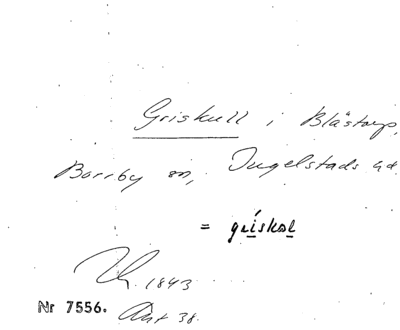 Griskull i Blästorp,
Borrby sn, Ingelstads hd.
= grískol
1843
Nr 7556. Ant 38.